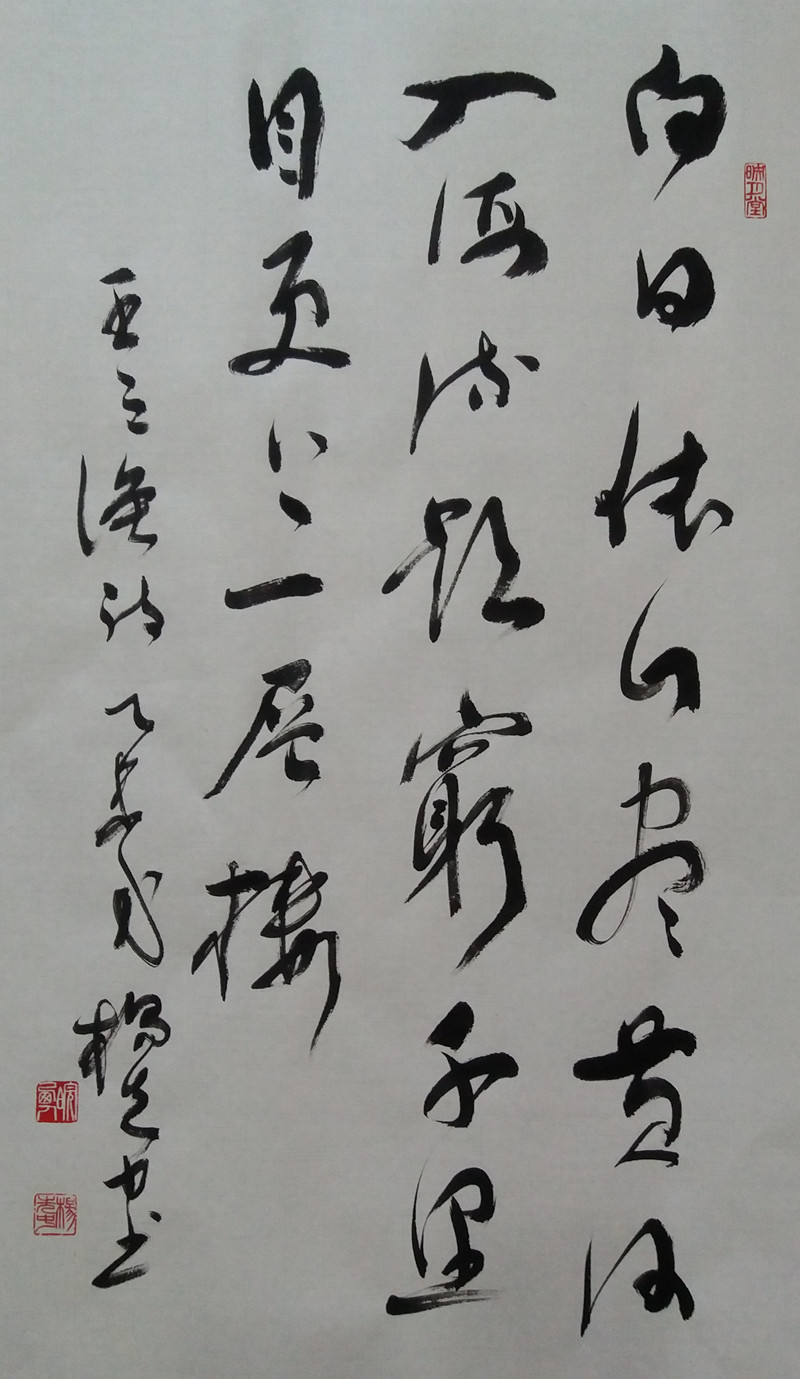 白日依山尽黄河
入海流欲窮千里
目更上一层楼
王之涣诗乙未 书